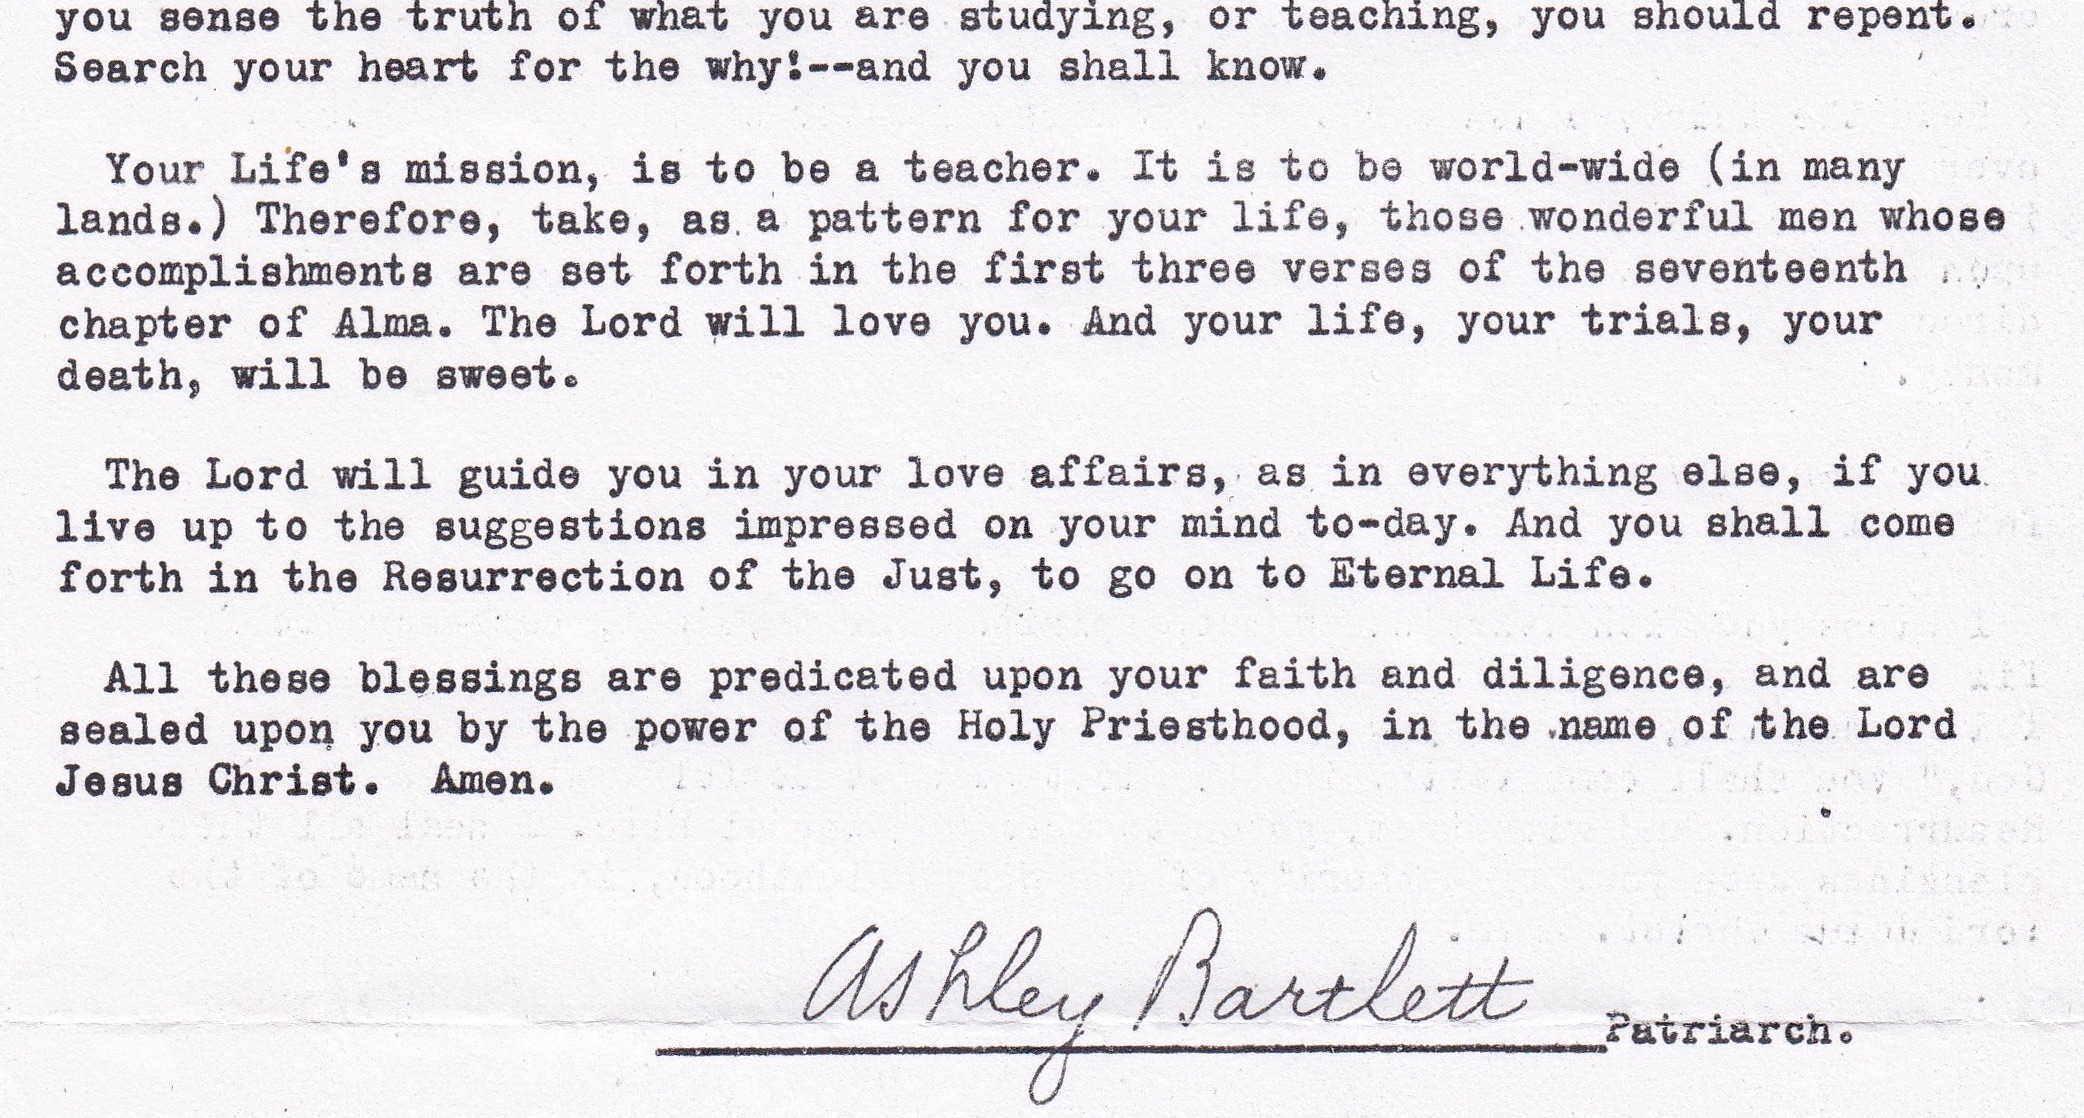 you sense the truth of what you are studying, or teaching, you should repent.
Search your heart for the why!--and you shall know.
Your Life's mission, is to be a teacher. It is to be world-wide (in many
lands.) Therefore, take, as a pattern for your life, those wonderful men whose
accomplishments are set forth in the first three verses of the seventeenth
chapter of Alma. The Lord will love you. And your life, your trials, your
death, will be sweet.
The Lord will guide you in your love affairs, as in everything else, if you
live up to the suggestions impressed on your mind to-day. And you shall come
forth in the Resurrection of the Just, to go on to Eternal Life.
All these blessings are predicated upon your faith and diligence, and are
sealed upon you by the power of the Holy Priesthood, in the name of the Lord
Jesus Christ.  Amen.
Ashley Bartlett
Patriarch.